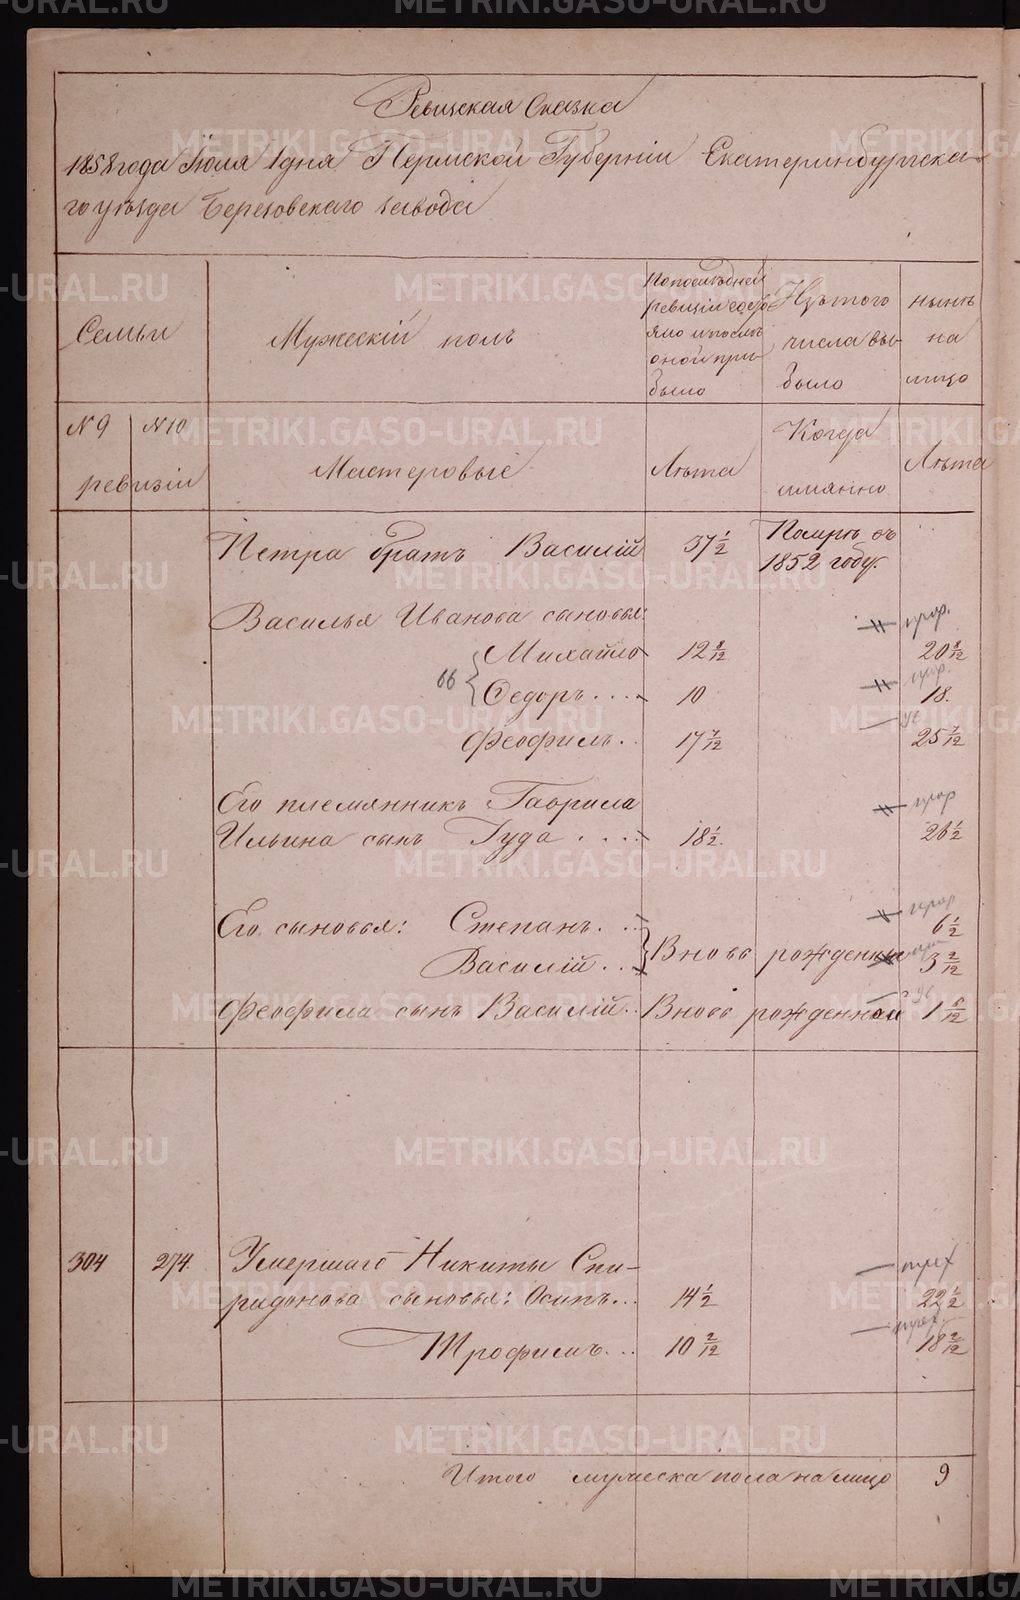 Ревизская Сказка
1858 года Июля 1 дня Пермской Губернiи Екатеринбургска-
го уѣзда Березовскаго завода
Семьи
Мужескiй полъ
По послѣдней
ревизiи состо
яло и послѣ
оной при-
было
Изъ того
числа вы-
было
нынѣ
на
лицо
N 9
N 10
ревизiи
Мастеровые
Лѣта
Когда
имянно
Лѣта
Петра братъ Василiй 37 1/2 Помръ въ
1852 году.
Василья Иванова сыновья:
Михайло 12 8/12 20 8/12
66
Ѳедоръ.... 10 18.
Феофилъ.. 17 7/12 25 7/12
Его племянникъ Гаврила
Ильина сынъ Гуда .... 18 1/2. 26 1/2
Его сыновья: Степанъ... 6 1/2
Василiй... Вновь рожденны 3 2/12
Феофила сынъ Василiй.. Вновь рожденной 1 8/12
304 274 Умершаго Никиты Спи-
ридонова сыновья: Осипъ... 14 1/2 22 1/2
Трофимъ... 10 2/12 18 2/12
Итого мужеска пола на лицо 9
METRIKI.GASO-URAL.RU